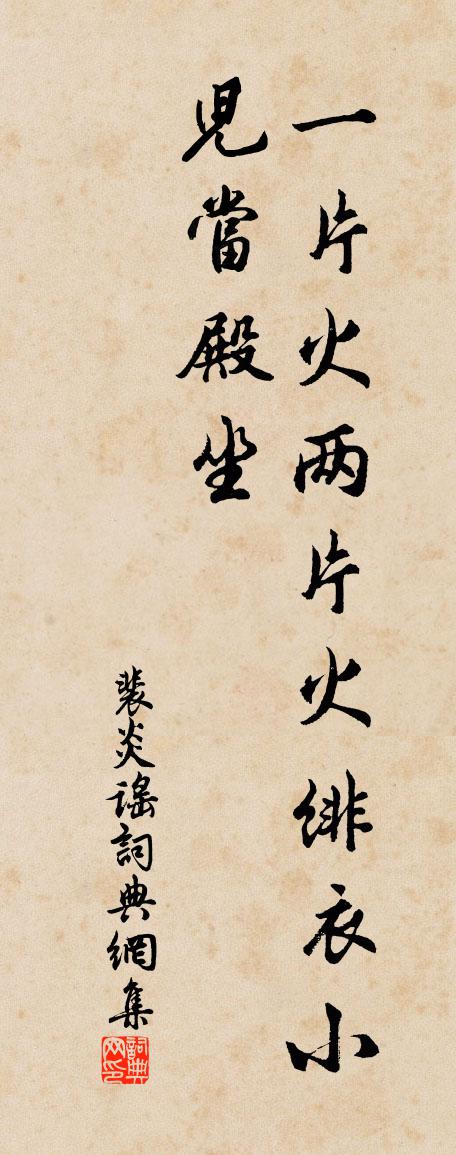 一片火两片火緋衣小
児當殿坐
裴炎謡詞典網集
詞典网印